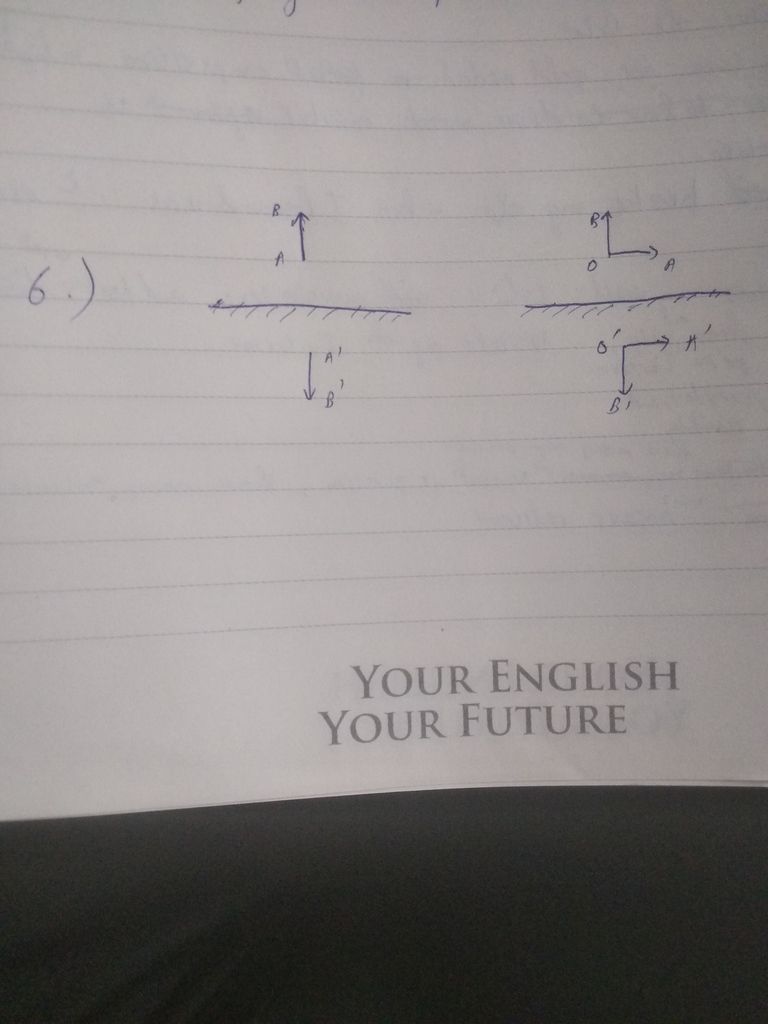 6.)
B
A
A'
B'
B
O
A
O'
A'
B'
YOUR ENGLISH
YOUR FUTURE